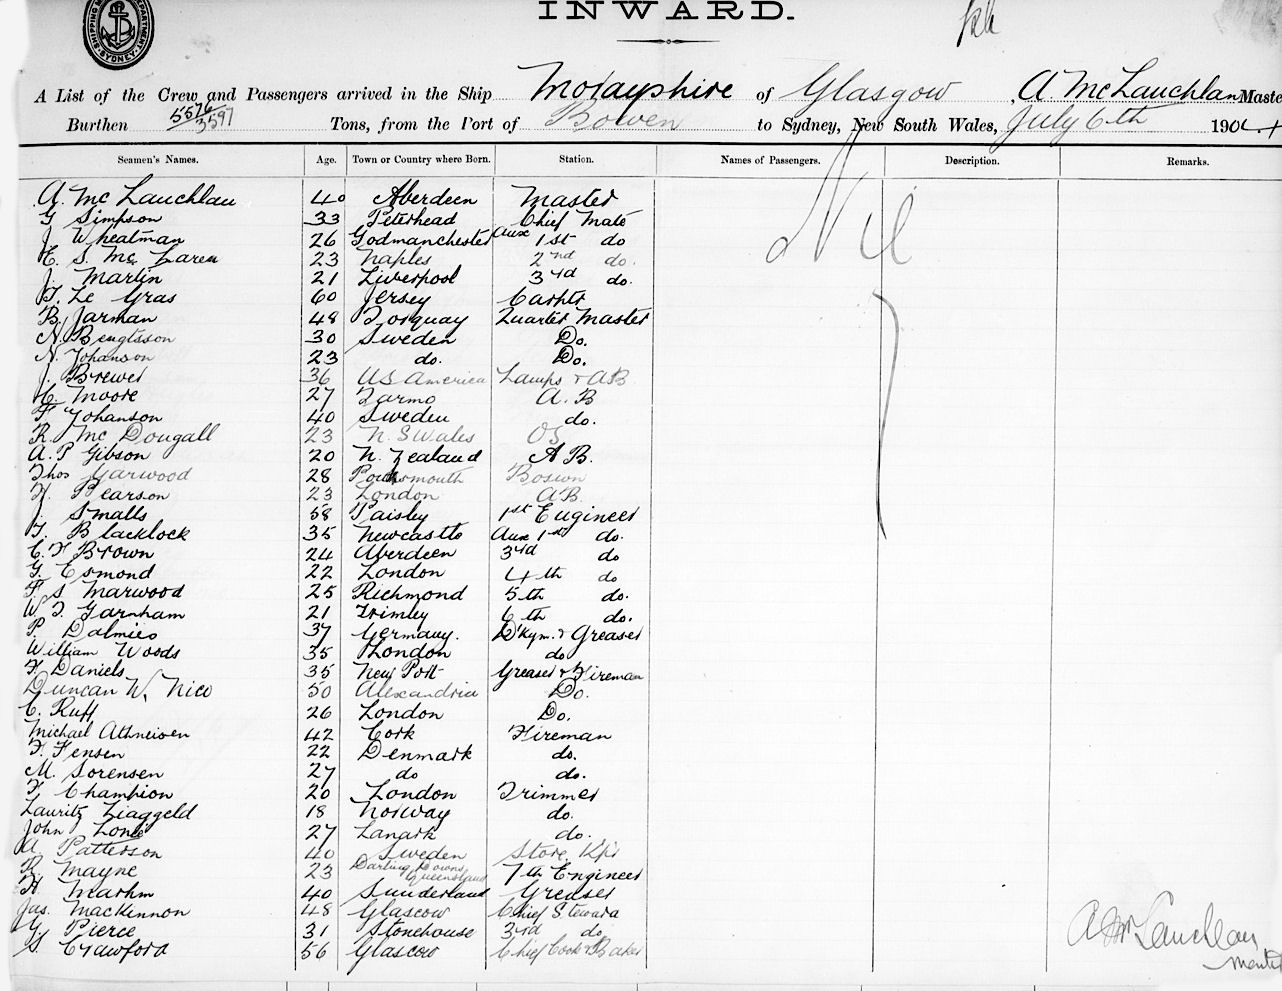 SHIPPING MASTER'S DEPARTMENT SYDNEY
INWARD.
A List of the Crew and Passengers arrived in the Ship Morayshire of Glasgow, A. McLauchlan Maste
Burthen 5576/3597 Tons, from the Port of Bowen to Sydney, New South Wales, July 6th 190
Seamen's Names. Age. Town or Country where Born. Station. Names of Passengers. Description. Remarks.
A. Mc Lauchlan 40 Aberdeen Master
G Simpson 33 Peterhead Chief Mate
J Wheatman 26 Godmanchester Aux 1st do
E. S. Mc Laren 23 Naples 2nd do.
Nil
J. Martin 21 Liverpool 3rd do.
T. Le Gras 60 Jersey Carptr
B. Jarman 48 Torquay Quarter Master
N. Bengtsson 30 Sweden Do.
N. Johanson 23 do. Do.
J. Brewer 36 US America Lamps & AB
C. Moore 27 A. B
F Johanson 40 Sweden do.
R. Mc Dougall 23 N. S Wales OS
A. P Gibson 20 N. Zealand A B.
Thos Garwood 28 Portsmouth Bosun
H. Pearson 23 London AB.
J. Smalls 58 Paisley 1st Engineer
T. Blacklock 35 Newcastle Aux 1st do.
C. F Brown 24 Aberdeen 3rd do
G. Esmond 22 London 4th do
F. S Marwood 25 Richmond 5th do.
W T. Garnham 21 Trimley 6th do.
P. Dalmies 37 Germany. D'kym. & Greaser
William Woods 35 London do
F. Daniels 35 New Port Greaser & Fireman
Duncan W. Nico 50 Alexandria Do.
C. Ruff 26 London Do.
Michael 42 Cork Fireman
F. Jensen 22 Denmark do.
M. Sorensen 27 do do.
F Champion 20 London Trimmer
Lauritz 18 Norway do.
John Long 27 Lanark do.
A. Patterson 40 Sweden Store Kpr
R. Mayne 23 Darling Downs Queensland 7th Engineer
H. Markm 40 Sunderland Greaser
Jas. Mackinnon 48 Glascow Chief Steward
G. Pierce 31 Stonehouse 3rd do
S. Crawford 56 Glascow Chief Cook & Baker
A McLauchlan
Master